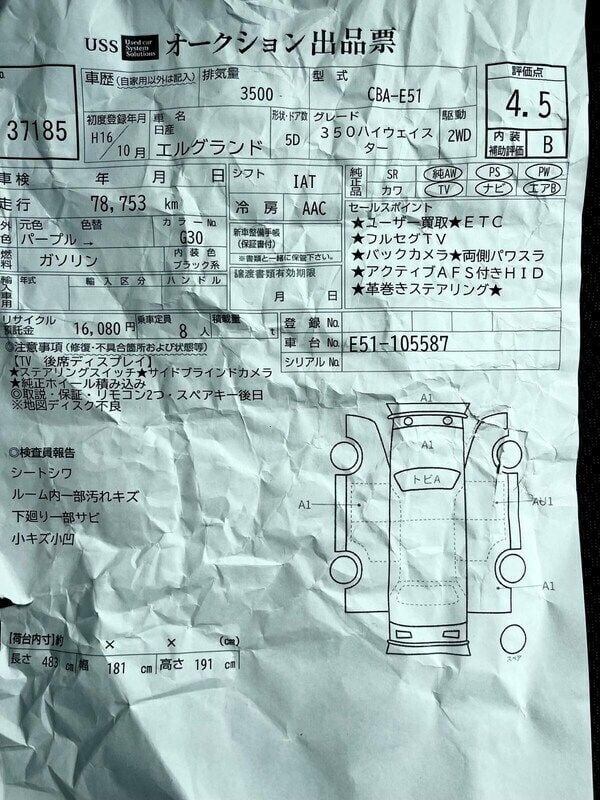 USS Used car System Solutions オークション出品票
車歴 (自家用以外は記入) 排気量 型式 評価点
3500 CBA-E51 4.5
37185
初度登録年月 車名 形状・ドア数 グレード 駆動
H16/10月 日産 エルグランド 5D 350ハイウェイスター 2WD
内装補助評価 B
車検 年 月 日 シフト IAT 純正品 SR 純AW PS PW
カワ TV ナビ エアB
走行 78,753 km 冷房 AAC セールスポイント
外色 元色 色替 カラーNo.
パープル → G30
新車整備手帳(保証書付)
※書類と一緒に保管下さい。
燃料 ガソリン 内装色 ブラック系
譲渡書類有効期限
月 日
輸入車用 年式 輸入区分 ハンドル
★ユーザー買取★ETC
★フルセグTV
★バックカメラ★両側パワスラ
★アクティブAFS付きHID
★革巻きステアリング★
リサイクル預託金 16,080円 乗車定員 8人 積載量 t
登録No.
車台No. E51-105587
シリアルNo.
◎注意事項(修復・不具合箇所および状態等)
【TV 後席ディスプレイ】
★ステアリングスイッチ★サイドブラインドカメラ
★純正ホイール積み込み
◎取説・保証・リモコン2つ・スペアキー後日
※地図ディスク不良
◎検査員報告
シートシワ
ルーム内一部汚れキズ
下廻り一部サビ
小キズ小凹
A1
A1
トビA
A1
A1
スペア
【荷台内寸】約 × × (cm)
長さ 483 cm 幅 181 cm 高さ 191 cm